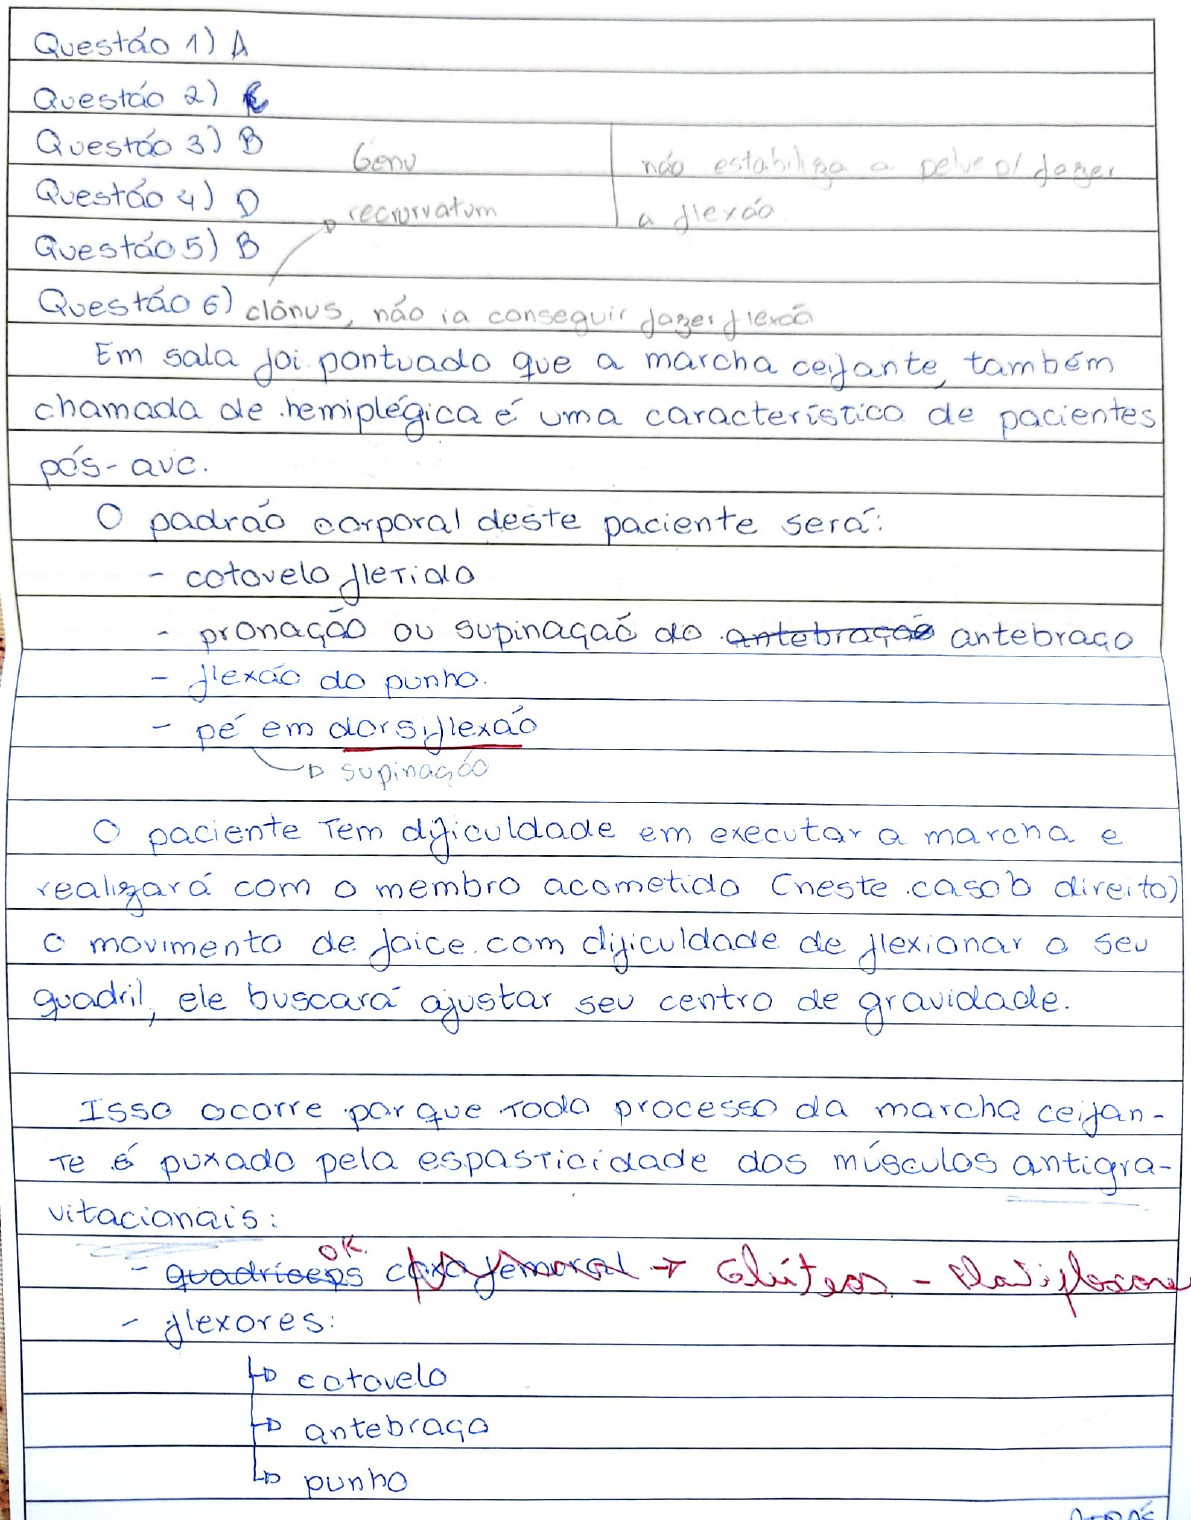 Questão 1) A
Questão 2)
Questão 3) B
Genu
não estabiliza a pelve p/ fazer
Questão 4) D
recurvatum
a flexão
Questão 5) B
Questão 6) clônus, não ia conseguir fazer flexão
Em sala foi pontuado que a marcha ceifante, também
chamada de hemiplégica é uma característica de pacientes
pós-avc.
O padrão corporal deste paciente será:
- cotovelo fletido
- pronação ou supinação do antebração antebraço
- flexão do punho.
- pé em dorsiflexão
supinação
O paciente tem dificuldade em executar a marcha e
realizará com o membro acometido (neste caso o direito)
o movimento de foice com dificuldade de flexionar o seu
quadril, ele buscará ajustar seu centro de gravidade.
Isso ocorre porque todo processo da marcha ceifan-
te é puxado pela espasticidade dos músculos antigra-
vitacionais:
OK
- quadríceps coxofemoral → Glúteos -
- flexores:
cotovelo
antebraço
punho
ATRÁS